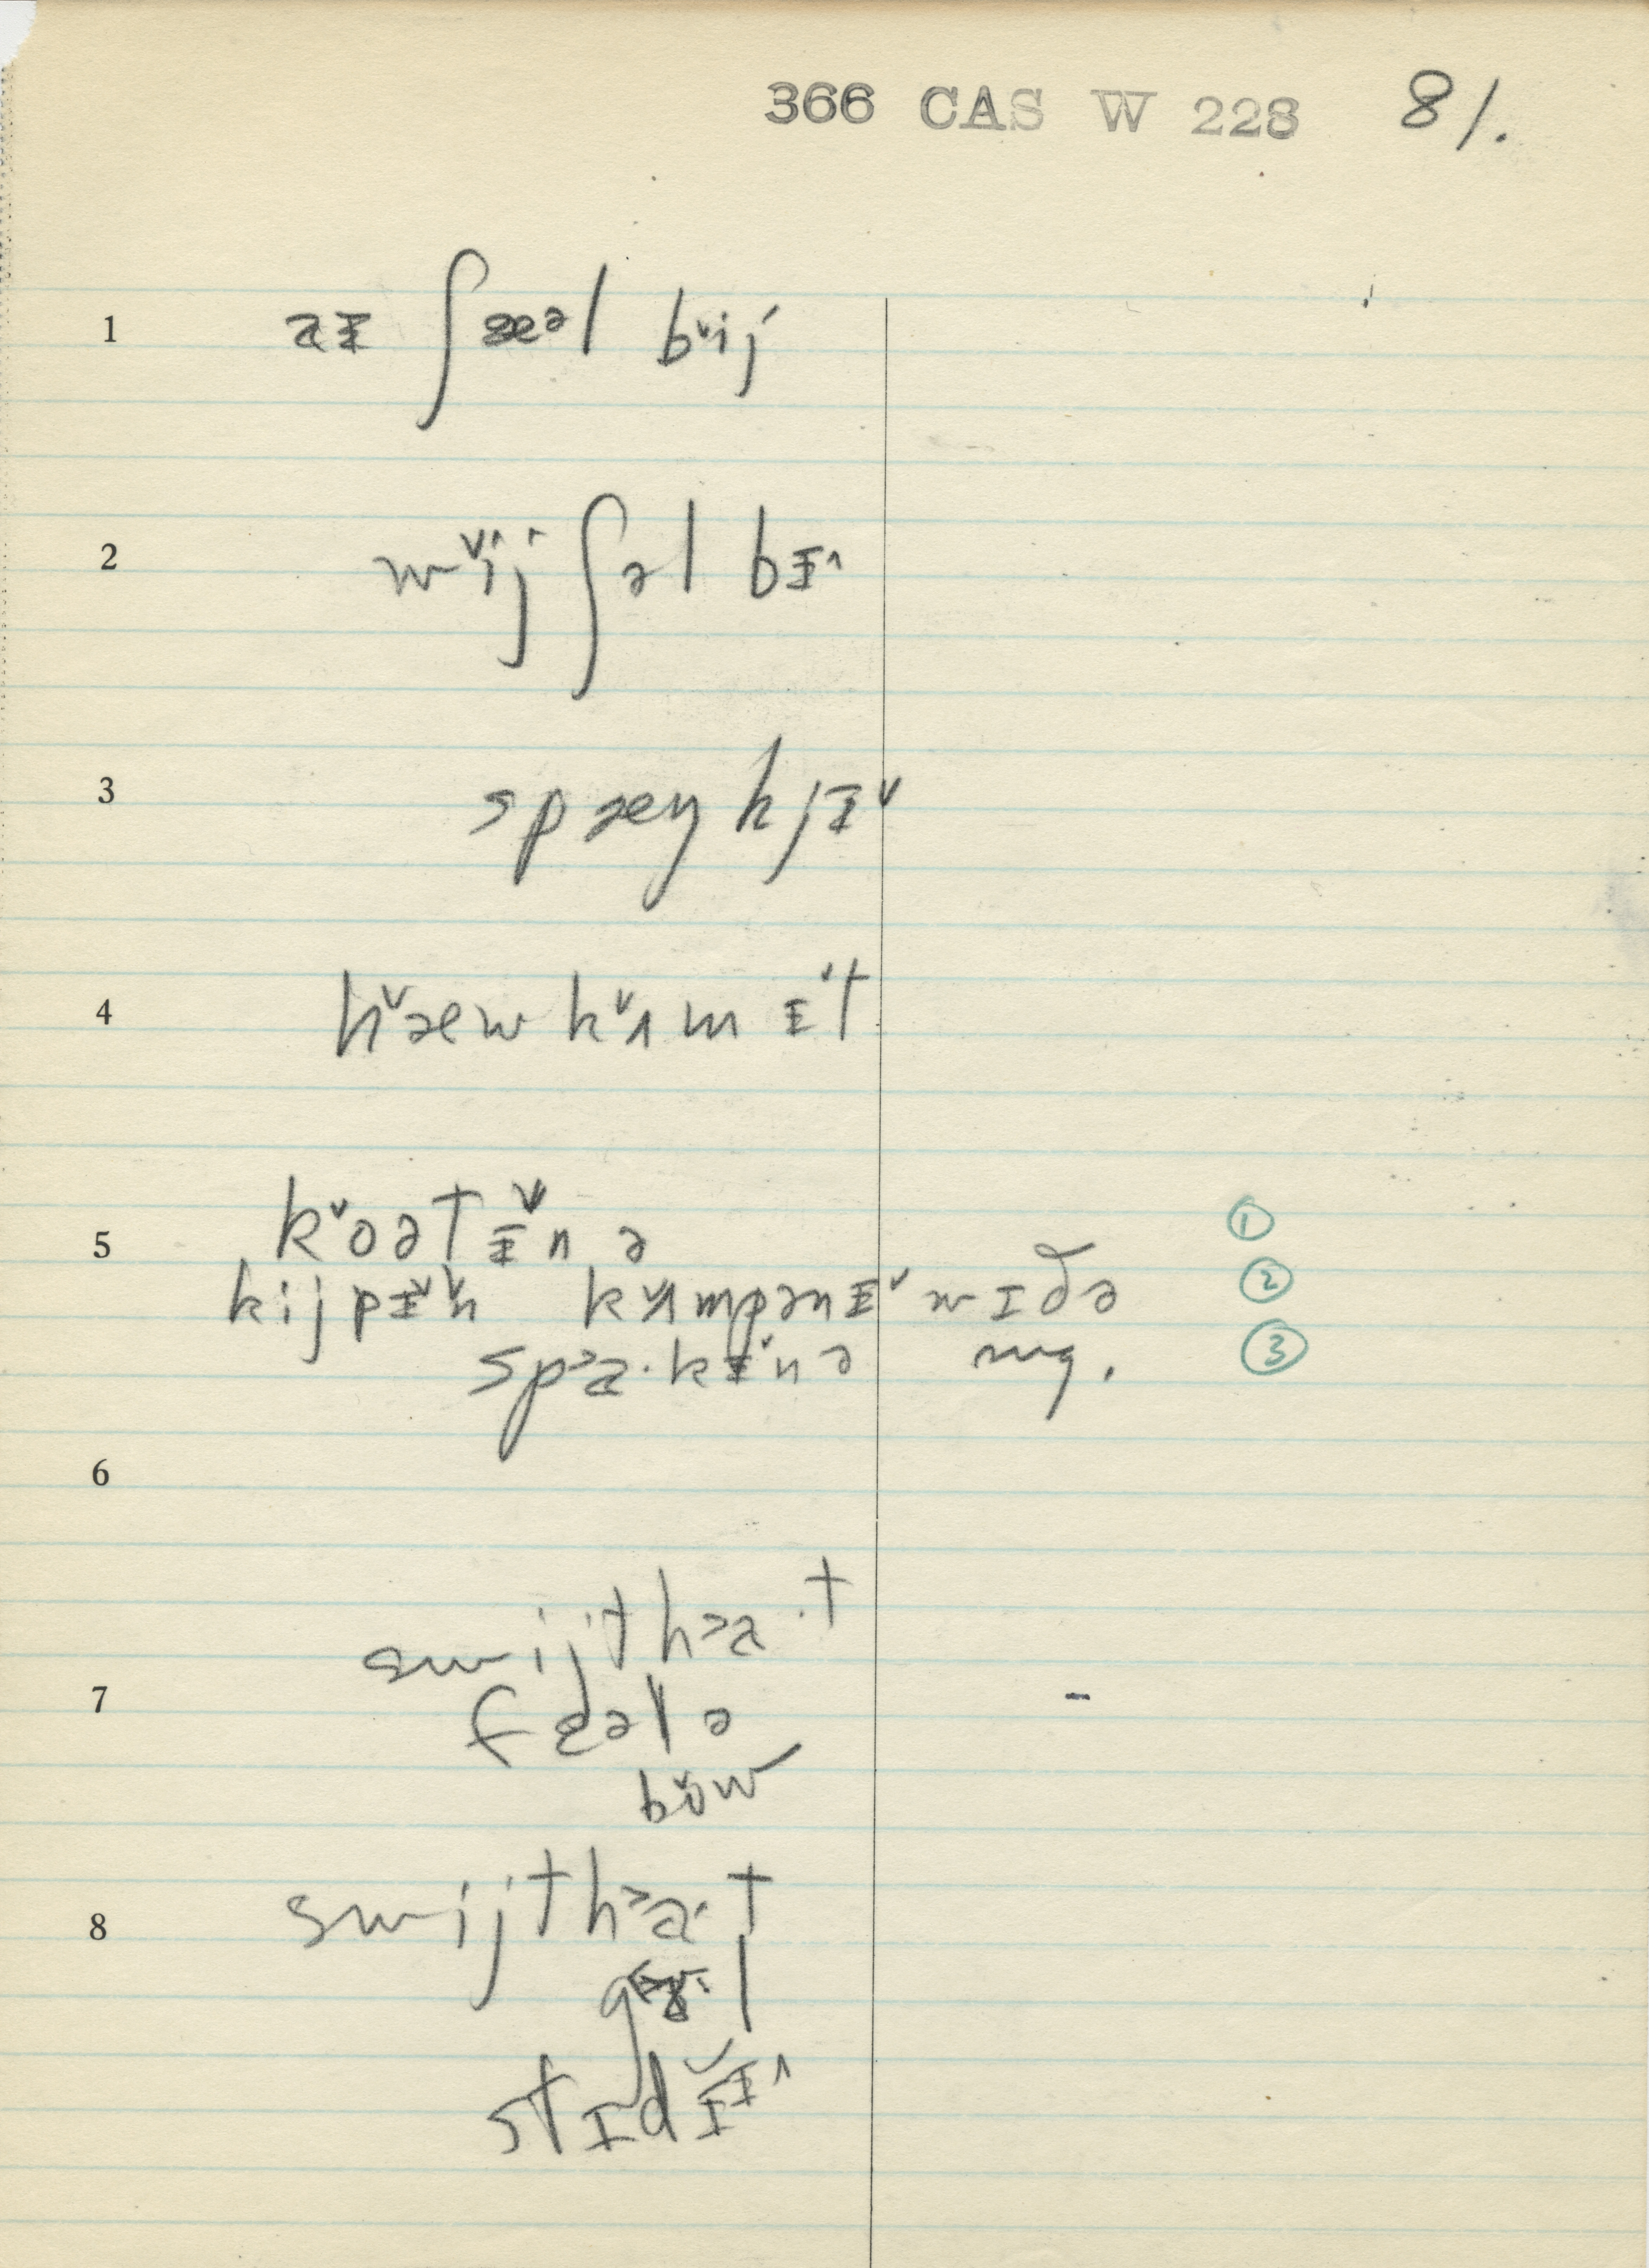 366 CAS W 228 81.
1 aɪ ʃæᵊl b˅ij
2 w˅ij ʃəl bɪ˄
3 spæŋkjɪ˅
4 h˅æw k˅ʌm ɪ˅t
5 k˅oətɪ˅n ə ①
kijpɪ˅n k˅ʌmpənɪ˅ wɪðə ②
sp˃a·kɪ˅n ə mg. ③
6
swijth˃a·t
7 fɛələ -
b˅ow
8 swijth˃a·t
l
stɪdɪ˅ɪ˄